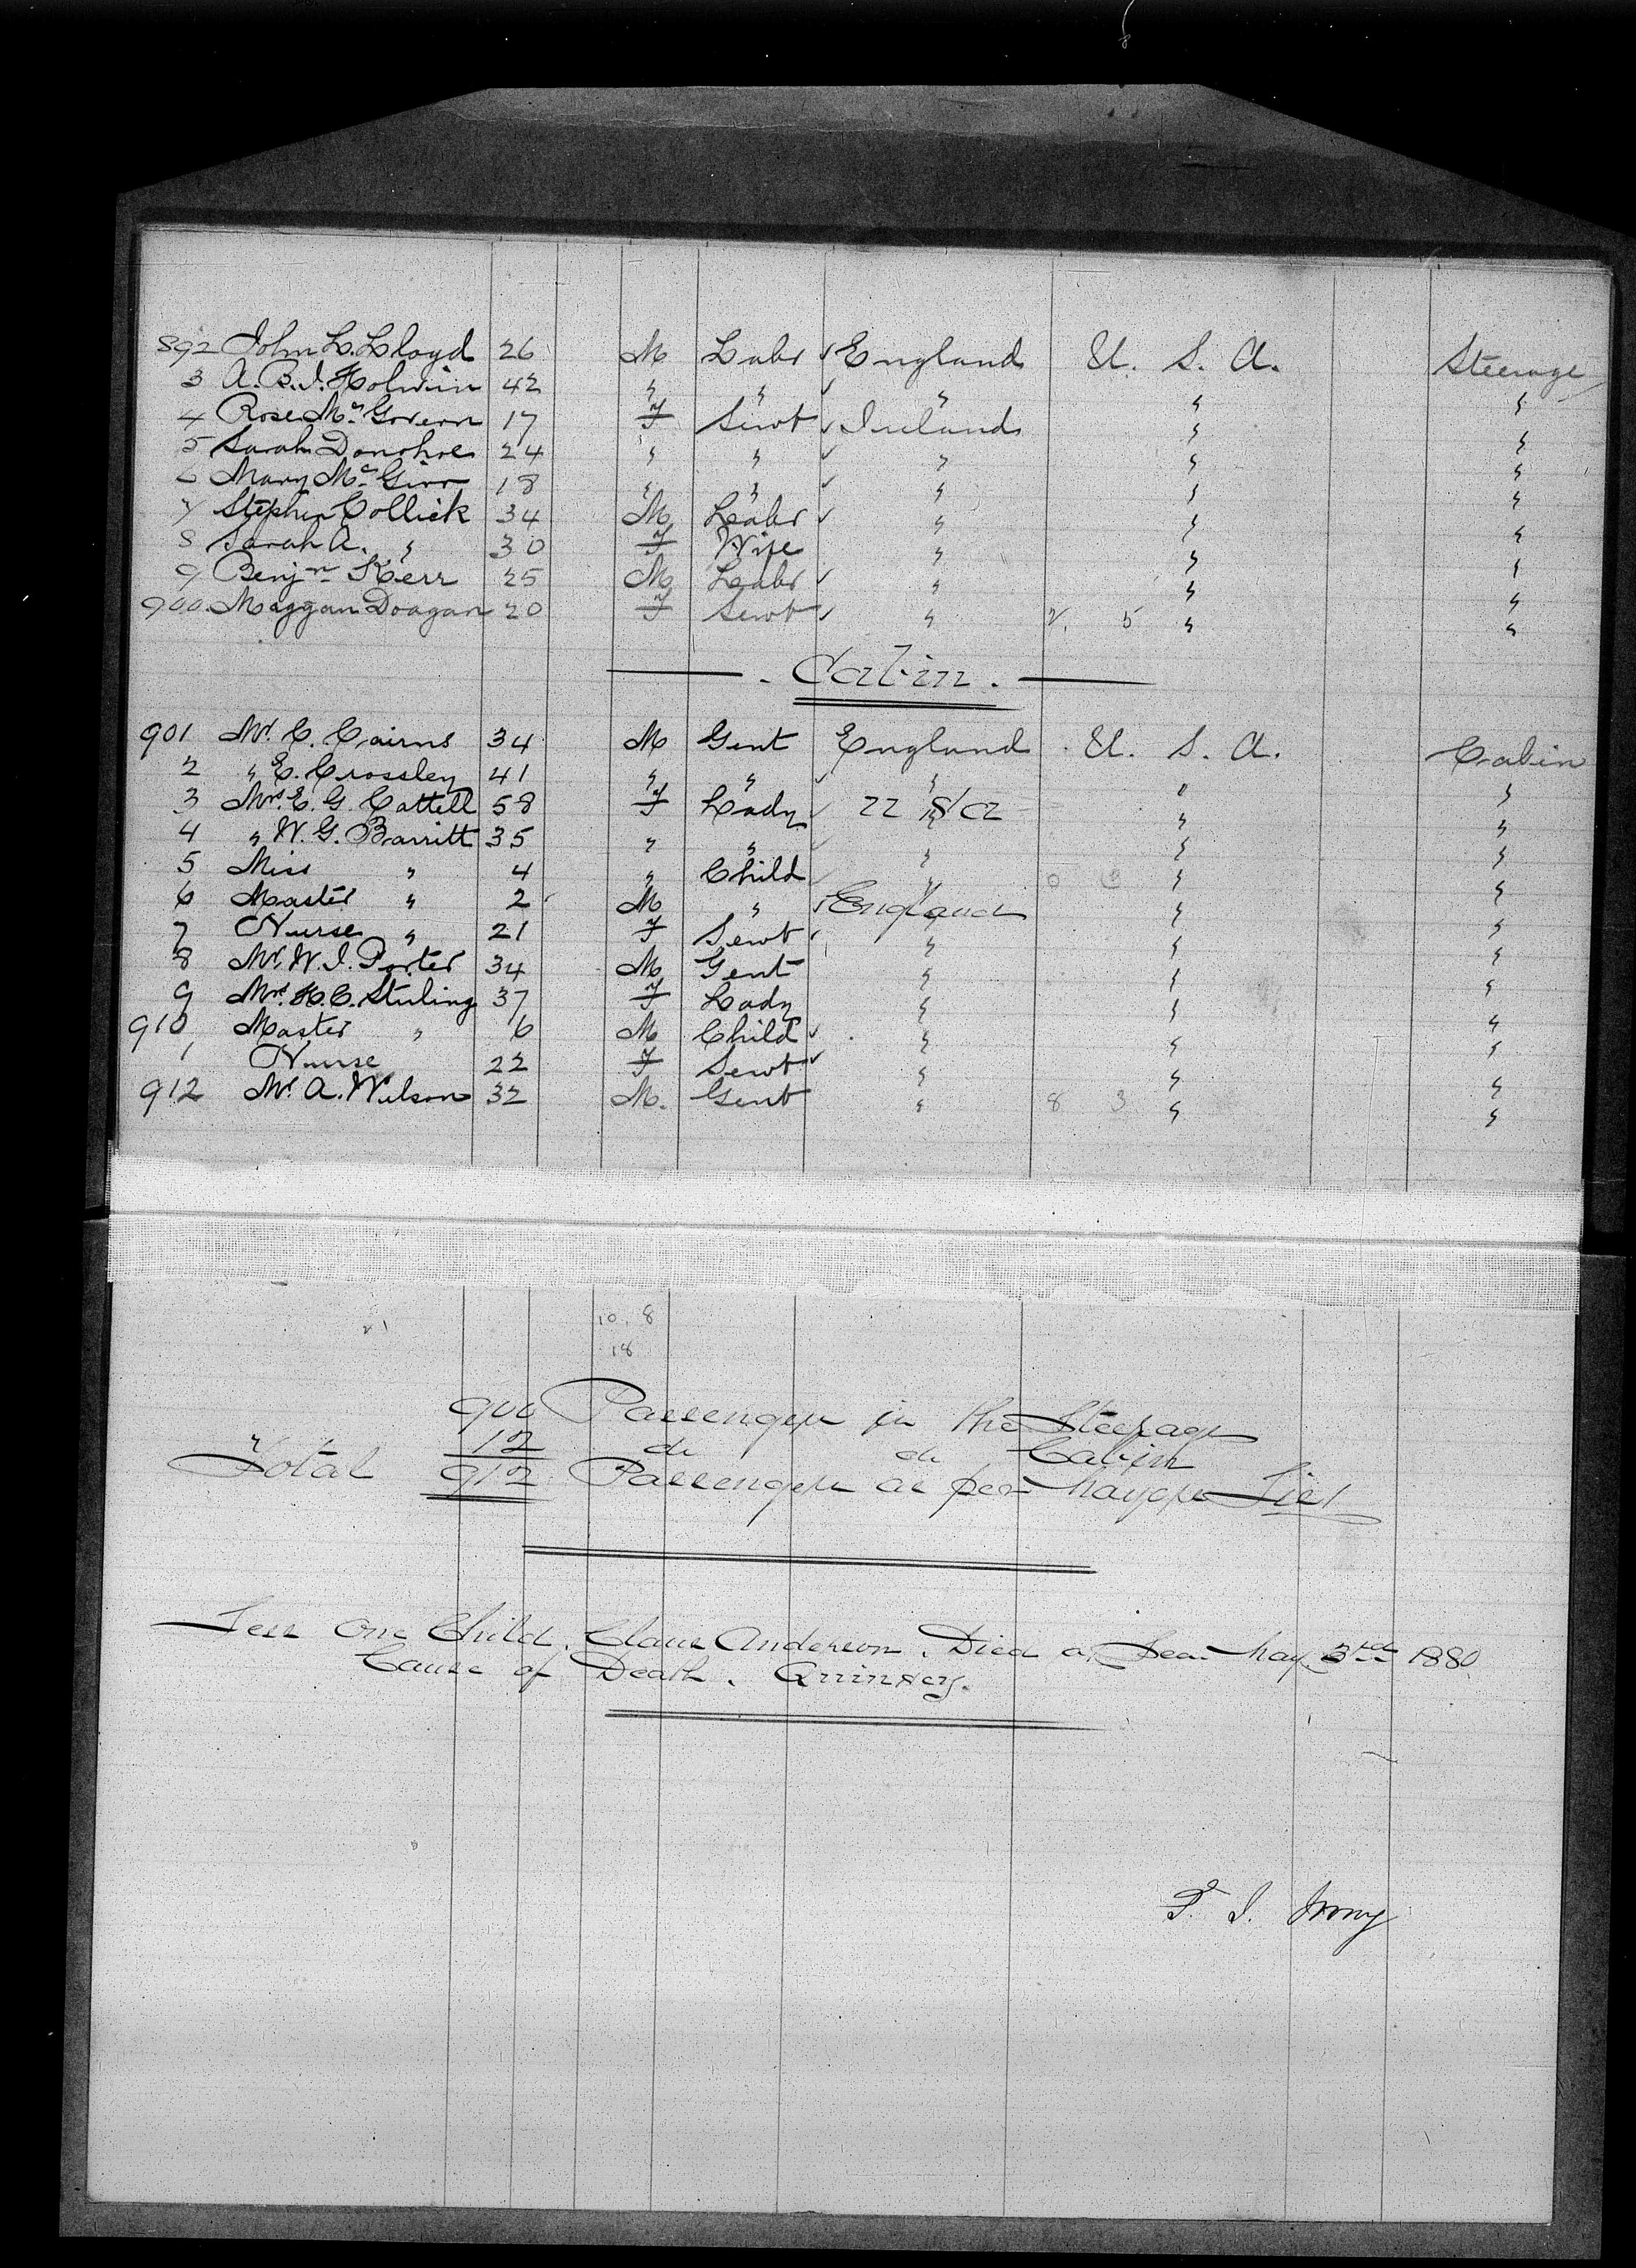 892 John L. Lloyd 26 M Labr ✓ England U. S. A. Steerage
3 A. B. J. Holwin 42 " " ✓ " " "
4 Rose Mc Govern 17 F Servt ✓ Ireland " "
5 Sarah Donohoe 24 " " ✓ " " "
6 Mary Mc Girr 18 " " ✓ " " "
7 Stephen Collick 34 M Labr ✓ " " "
8 Sarah A. " 30 F Wife " " "
9 Benjn Kerr 25 M Labr ✓ " " "
900 Maggan Doagan 20 F Servt ✓ " 5 " "
Cabin.
901 Mr. C. Cairns 34 M Gent England U. S. A. Cabin
2 " E. Crossley 41 " " ✓ " " "
3 Mrs. E. G. Cattell 58 F Lady ✓ " "
4 " W. G. Barritt 35 " " ✓ " " "
5 Miss " 4 " Child ✓ " " "
6 Master " 2 M " ✓ England " "
7 Nurse " 21 F Servt ✓ " " "
8 Mr. W. J. Porter 34 M Gent " " "
9 Mrs. H. C. Stirling 37 F Lady " " "
910 Master " 6 M Child ✓ " " "
1 Nurse 22 F Servt ✓ " " "
912 Mr. A. Wilson 32 M. Gent " 8 3 " "
10. 8
18
900 Passengers in the Steerage
12 do do Cabin
Total 912 Passengers as per List
Less One Child. Claus Anderson. Died at Sea May 3rd 1880
Cause of Death. Quinsey.